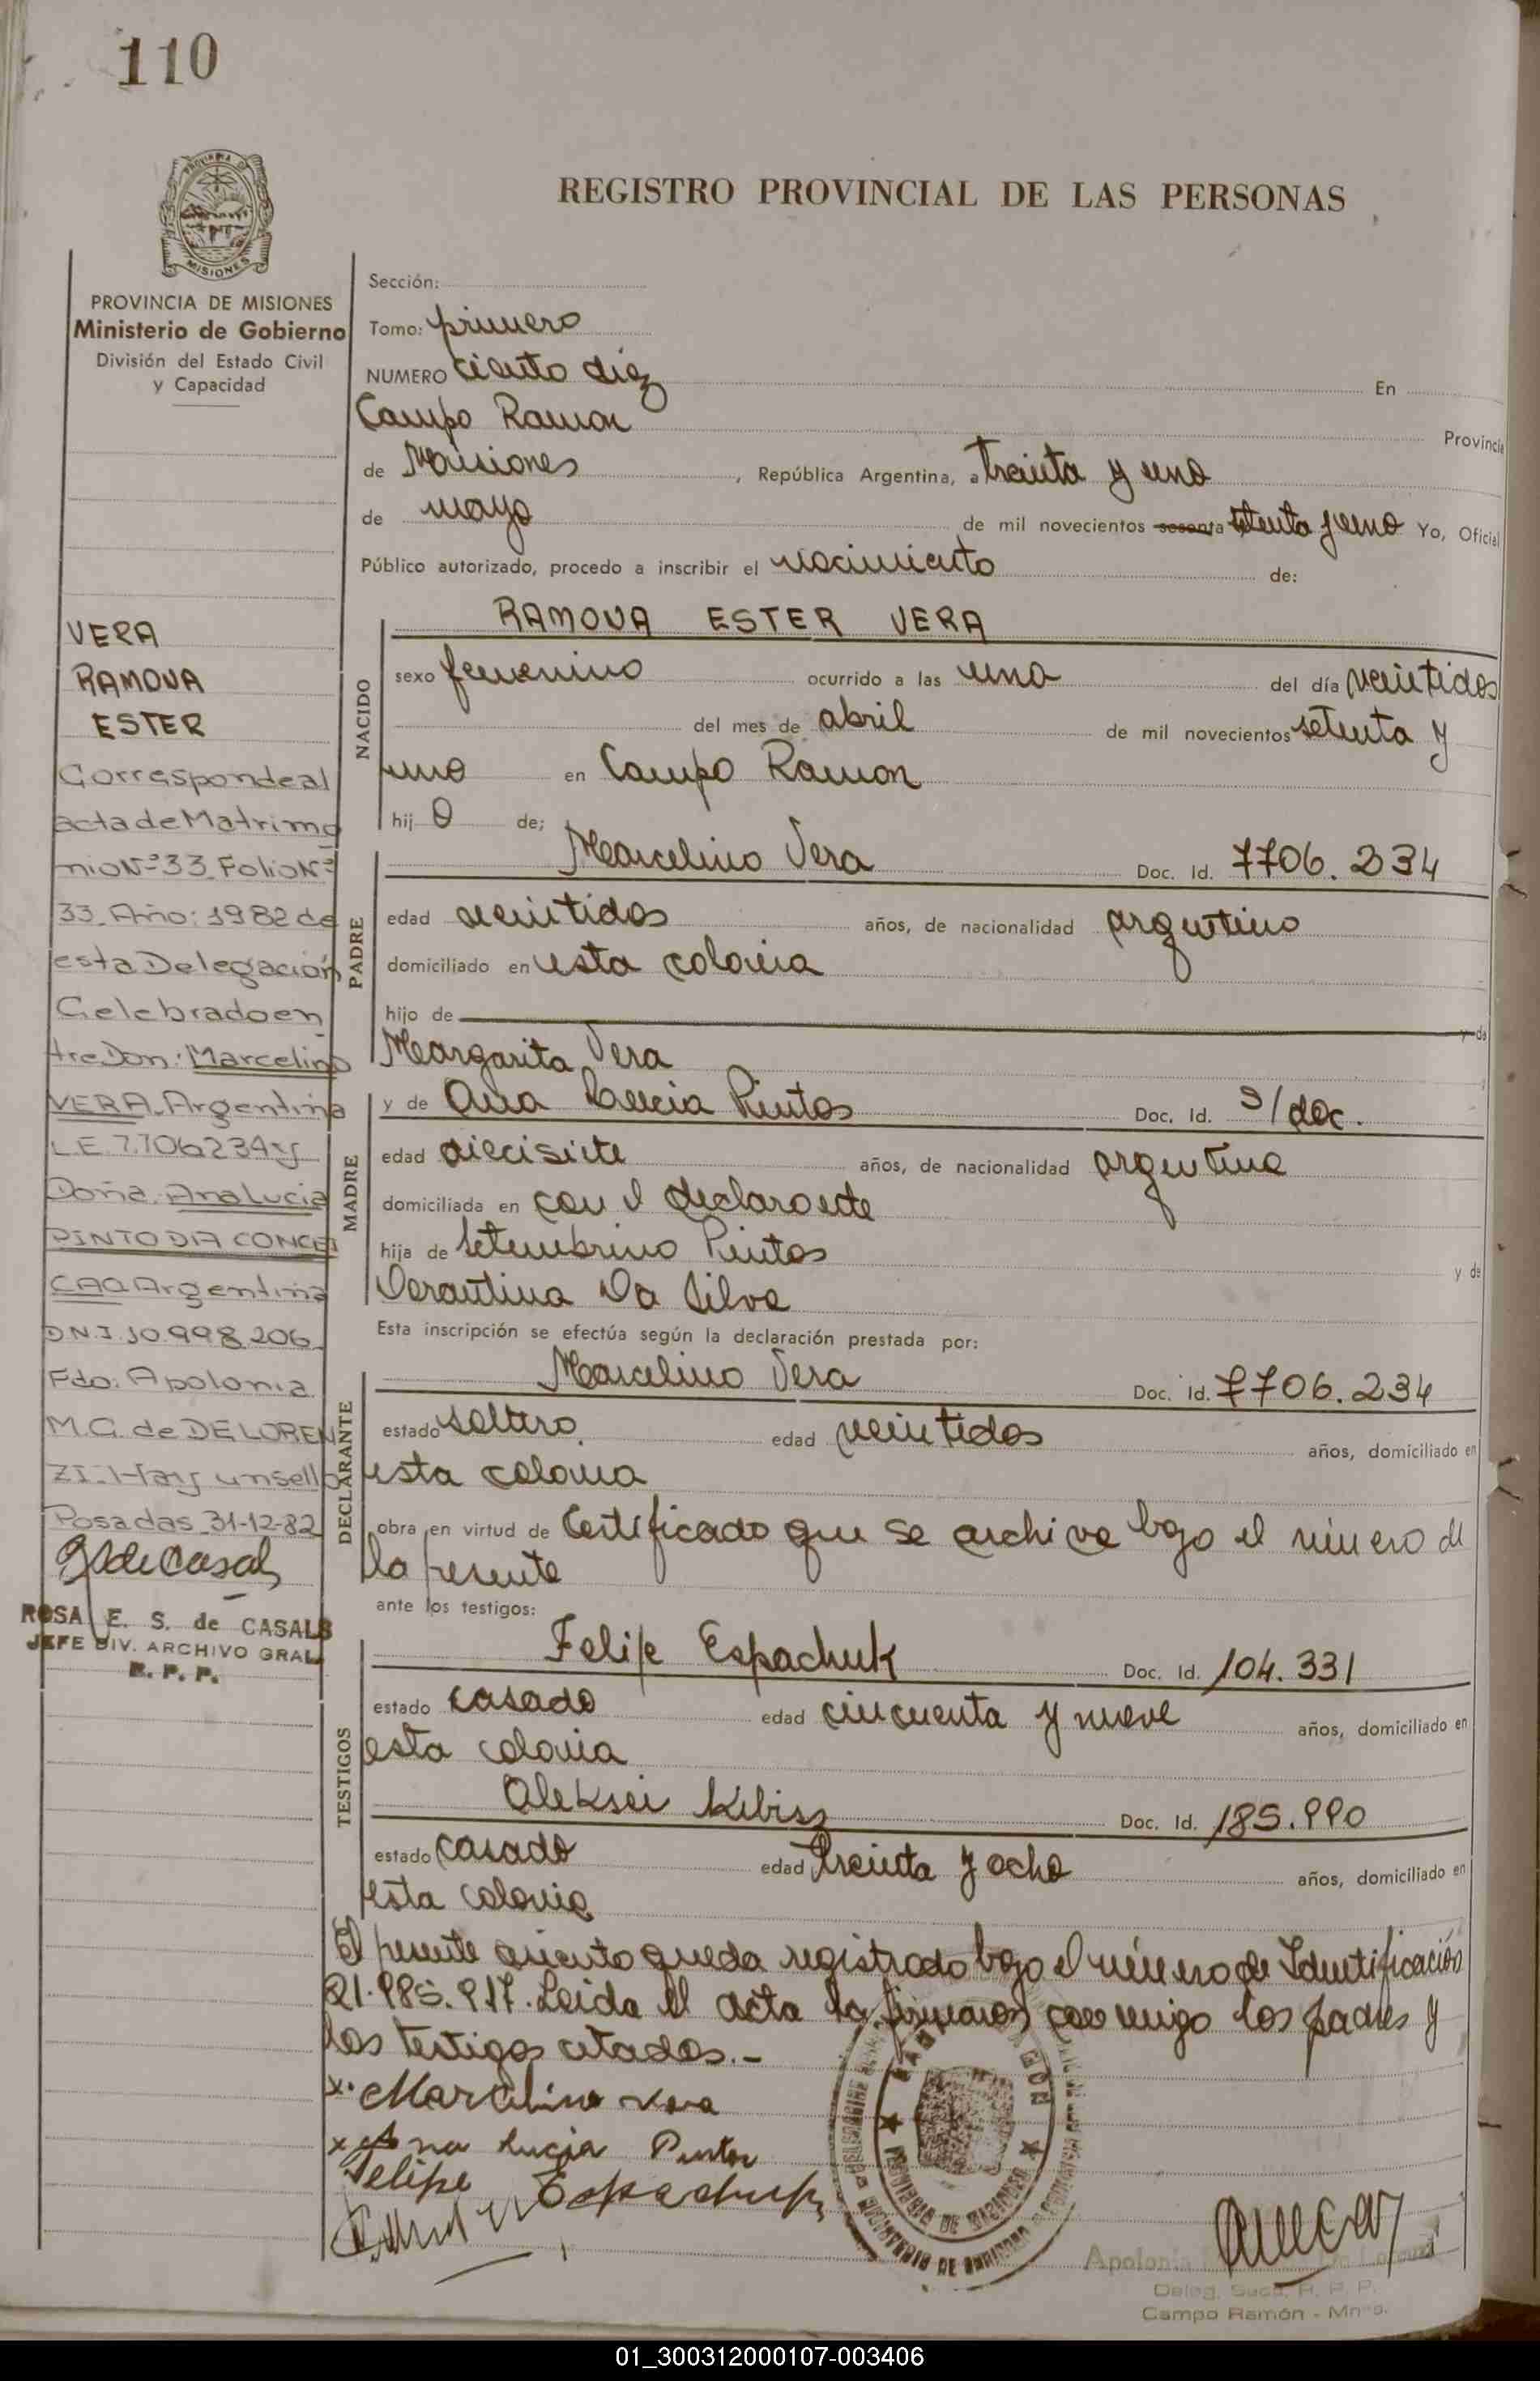 110
PROVINCIA DE
MISIONES
PROVINCIA DE MISIONES
Ministerio de Gobierno
División del Estado Civil
y Capacidad
REGISTRO PROVINCIAL DE LAS PERSONAS
Sección:
Tomo: primero
NUMERO ciento diez En
Campo Ramon Provincia
de Misiones, República Argentina, a treinta y uno
de mayo de mil novecientos sesenta setenta y uno Yo, Oficial
Público autorizado, procedo a inscribir el nacimiento de:
NACIDO
RAMONA ESTER VERA
sexo femenino ocurrido a las una del día veintidos
del mes de abril de mil novecientos setenta y
uno en Campo Ramon
hij a de;
PADRE
Marcelino Vera Doc. Id. 7706.234
edad veintidos años, de nacionalidad argentino
domiciliado en esta colonia
hijo de y de
Margarita Vera
MADRE
y de Ana Lucia Pintos Doc. Id. s/doc.
edad diecisiete años, de nacionalidad argentina
domiciliada en con el declarante
hija de Setembrino Pintos y de
Da Silva
Esta inscripción se efectúa según la declaración prestada por:
DECLARANTE
Marcelino Vera Doc. Id. 7706.234
estado soltero. edad veintidos años, domiciliado en
esta colonia
obra en virtud de Certificado que se archiva bajo el número de
la presente
ante los testigos:
TESTIGOS
Felipe Espachuk Doc. Id. 104.331
estado casado edad cincuenta y nueve años, domiciliado en
esta colonia
Aleksei Kibisz Doc. Id. 185.990
estado casado edad treinta y ocho años, domiciliado en
esta colonia
El presente asiento queda registrado bajo el número de Identificación
21.985.917. Leida el acta la firmaron conmigo los padres y
los testigos citados.-
x. Marcelino Vera
x Ana Lucia Pintos
Felipe Espachuk
Apolonia De Lorenzi
Deleg. Sucs. R. P. P.
Campo Ramón - Mnes.
VERA
RAMONA
ESTER
Corresponde al
acta de Matrimo
nio Nº 33 Folio Nº
33 Año: 1982 de
esta Delegación
Celebrado en
tre Don: Marcelino
VERA Argentina
L.E. 7.706234 y
Doña. Ana Lucia
PINTO DA CONCEI
CAO Argentina
D.N.I 10.998.206
Fdo: Apolonia
M.G. de DE LOREN
ZI.- Hay un sello
Posadas 31-12-82
ROSA E. S. de CASALS
JEFE DIV. ARCHIVO GRAL.
R. P. P.
01_300312000107-003406